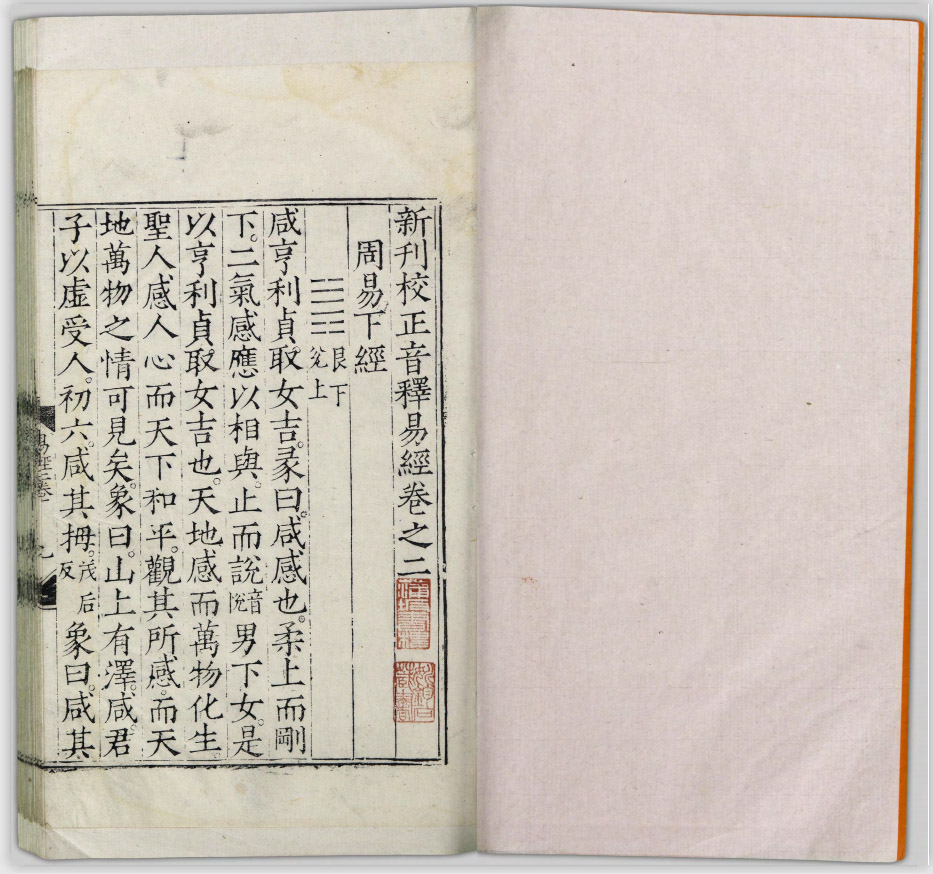 新刊校正音釋易經卷之二
周易下經
艮下
兌上
咸亨利貞取女吉彖曰咸感也柔上而剛
下二氣感應以相與止而說音悅男下女是
以亨利貞取女吉也天地感而萬物化生
聖人感人心而天下和平觀其所感而天
地萬物之情可見矣象曰山上有澤咸君
子以虛受人初六咸其拇茂后反象曰咸其